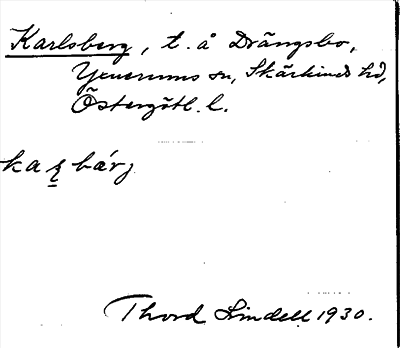 Karlsberg, t. å Drängsbo,
Yxnerums sn, Skärkinds hd,
Östergötl. l.
Thord Lindell 1930.